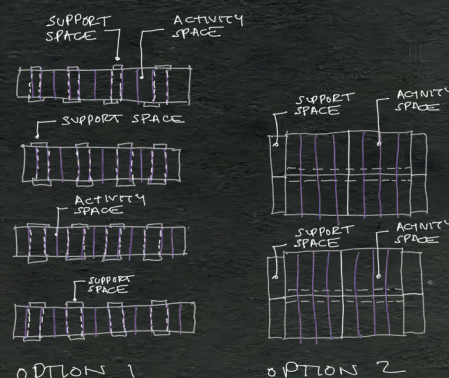 SUPPORT
SPACE
ACTIVITY
SPACE
SUPPORT SPACE
ACTIVITY
SPACE
SUPPORT
SPACE
OPTION 1
SUPPORT
SPACE
ACTIVITY
SPACE
SUPPORT
SPACE
ACTIVITY
SPACE
OPTION 2